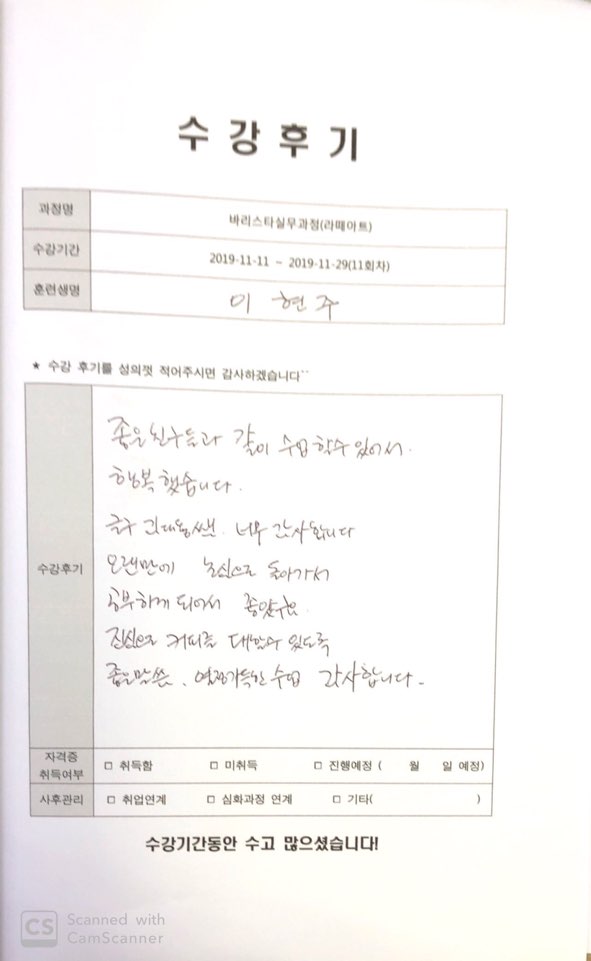 수 강 후 기
과정명 바리스타실무과정(라떼아트)
수강기간 2019-11-11 ~ 2019-11-29(11회차)
훈련생명 이 현 주
* 수강 후기를 성의껏 적어주시면 감사하겠습니다^^
수강후기
좋은 친구들과 같이 수업 할수 있어서.
행복했습니다.
너무 감사합니다
오랜만에 돌아가서
공부하게 되어서 좋았구요.
진심으로 커피를 대할수 있도록
좋은말씀. 열정가득한 수업 감사합니다-
자격증 취득여부 □ 취득함 □ 미취득 □ 진행예정 ( 월 일 예정)
사후관리 □ 취업연계 □ 심화과정 연계 □ 기타( )
수강기간동안 수고 많으셨습니다!
CS Scanned with
CamScanner